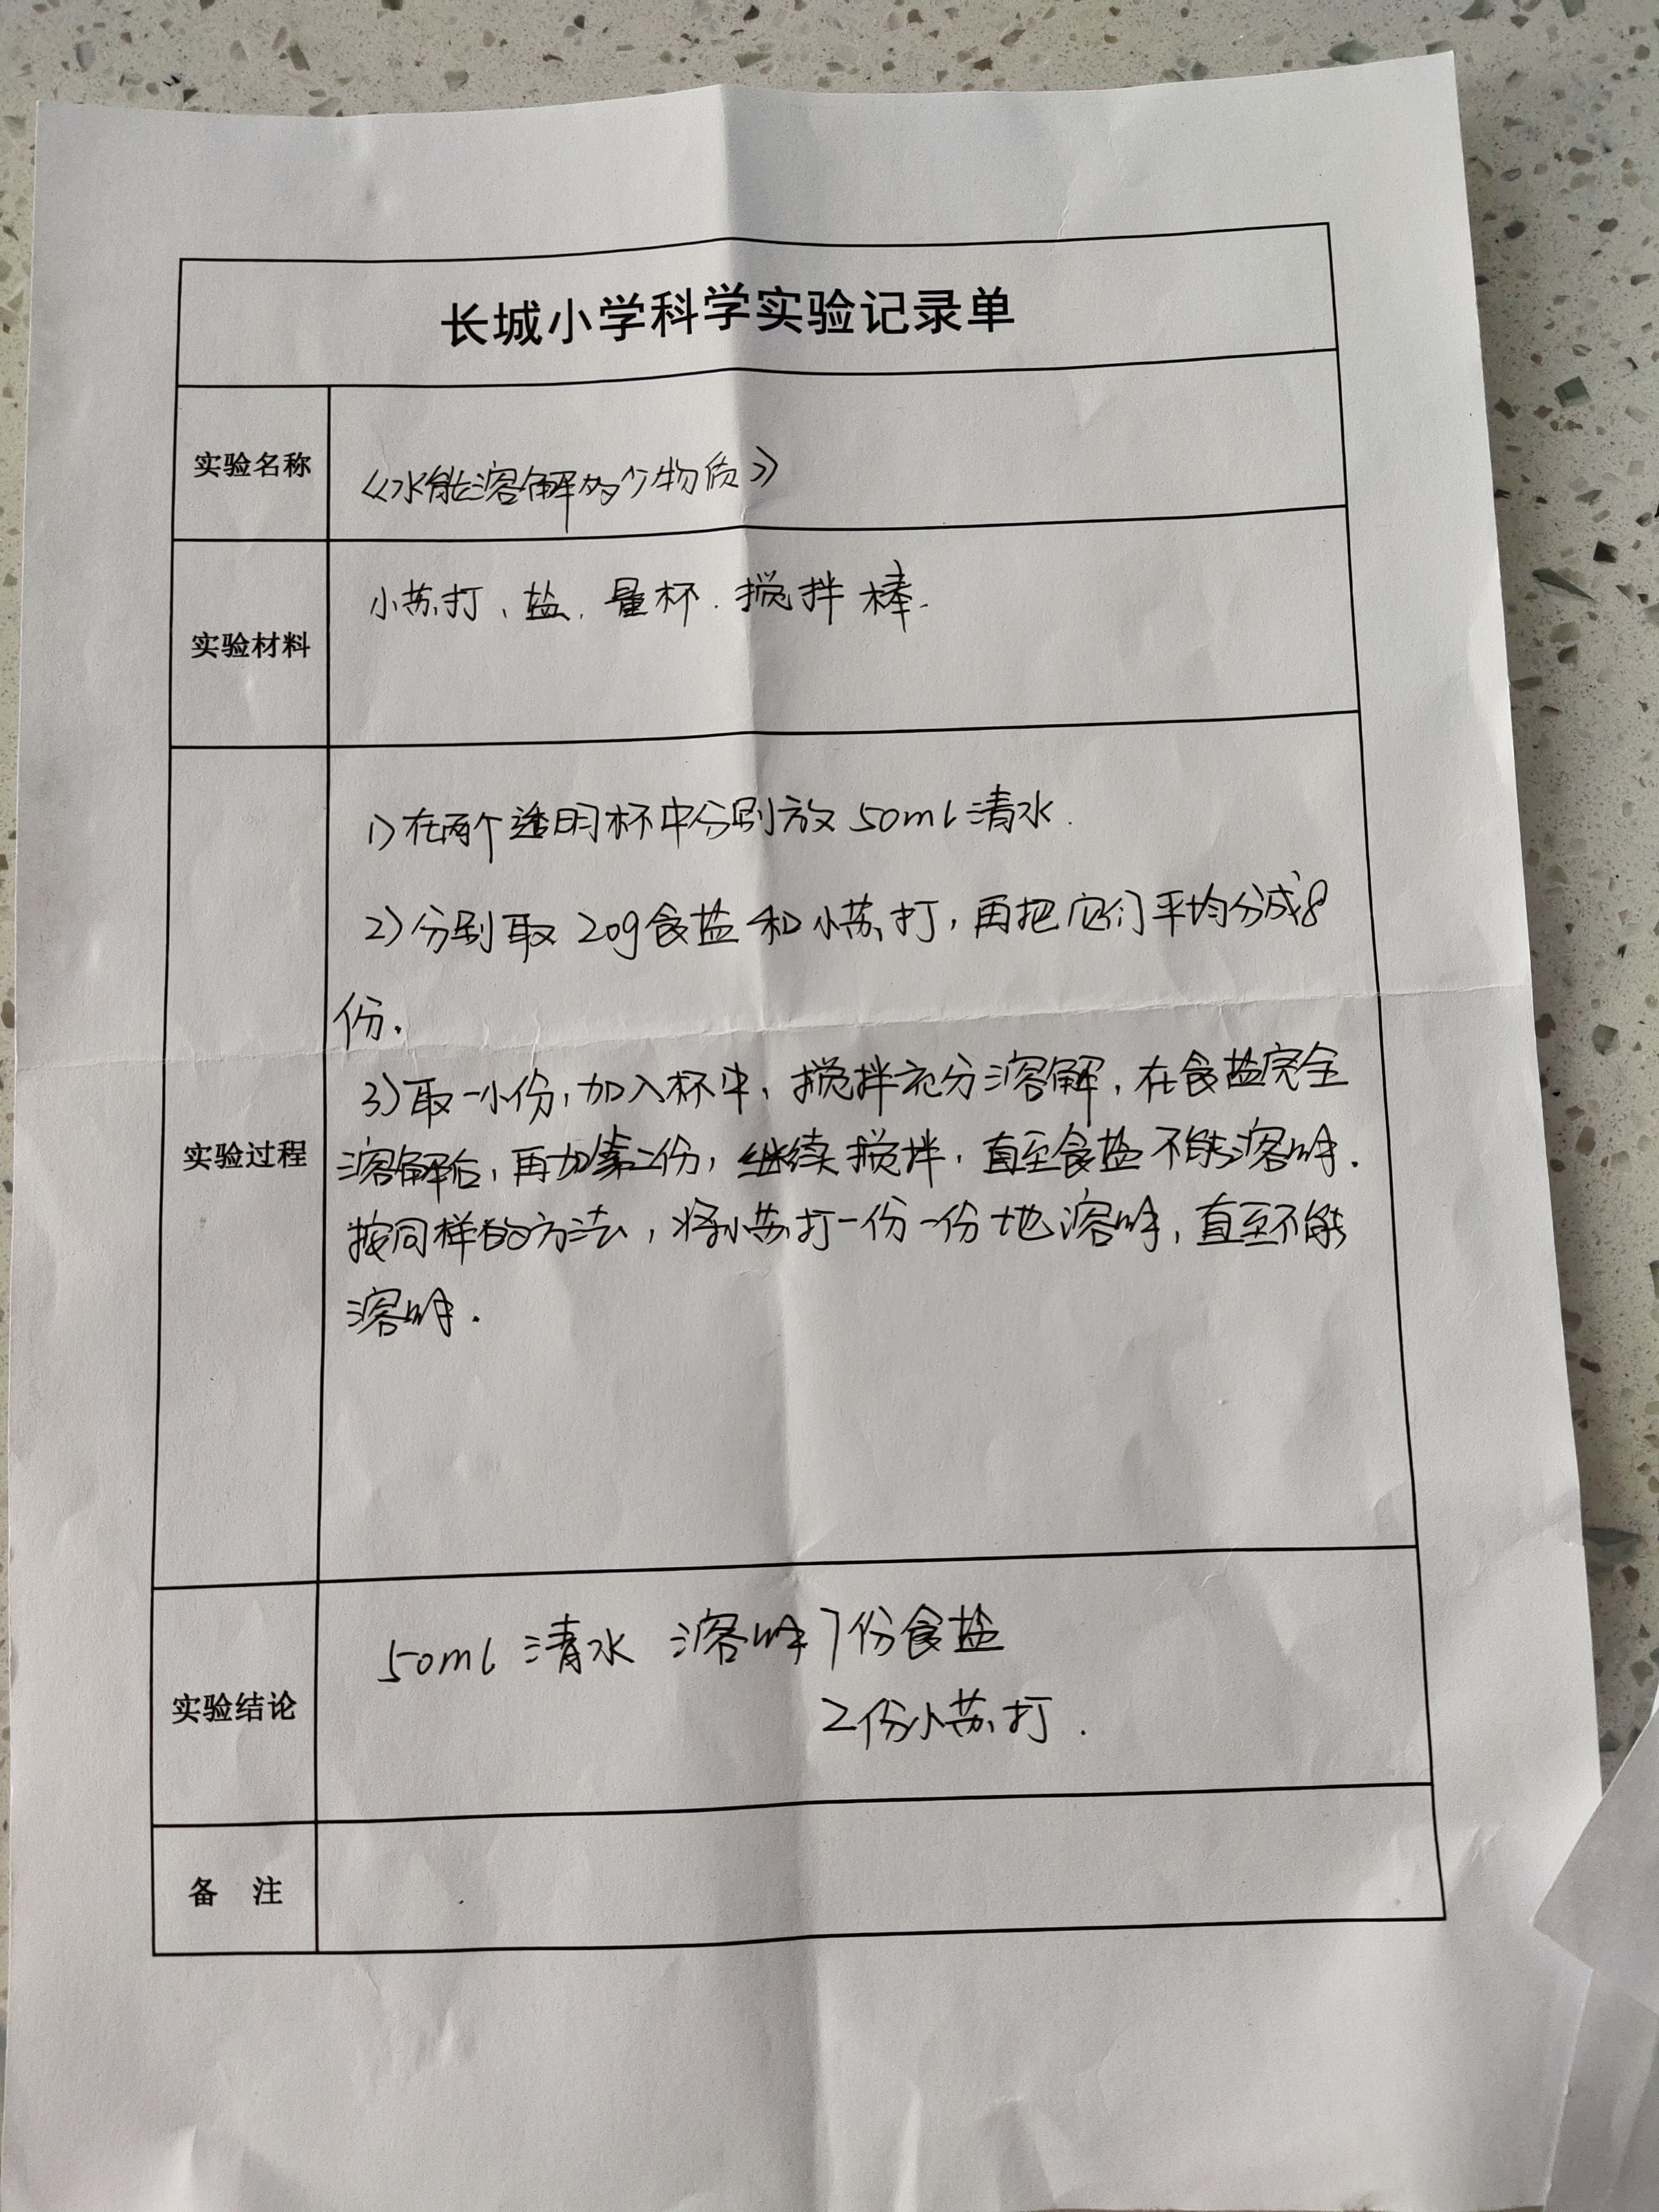 长城小学科学实验记录单
实验名称
《水能溶解多少物质》
实验材料
小苏打、盐、量杯.搅拌棒.
实验过程
1)在两个透明杯中分别放50ml清水.
2)分别取20g食盐和小苏打,再把它们平均分成8
份.
3)取一小份,加入杯中,搅拌充分溶解,在食盐完全
溶解后,再加第二份,继续搅拌,直至食盐不能溶解.
按同样的方法,将小苏打一份一份地溶解,直至不能
溶解.
实验结论
50ml清水 溶解7份食盐
2份小苏打.
备 注